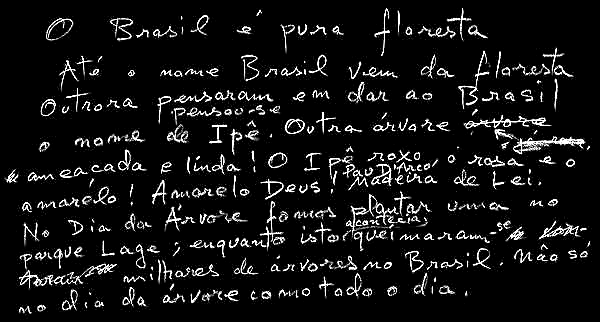 O Brasil é pura floresta
Até o nome Brasil vem da floresta
Outrora pensaram em dar ao Brasil
pensou-se
o nome de Ipê. Outra árvore árvore
ameacada e linda! O Ipê roxo o rosa e o
Pau D'Arco
amarélo! Amarelo Deus! Madeira de Lei.
No Dia da Árvore fomos plantar uma no
acontecia
parque Lage; enquanto isto queimaram-se
milhares de árvores no Brasil. Não só
no dia da árvore como todo o dia.